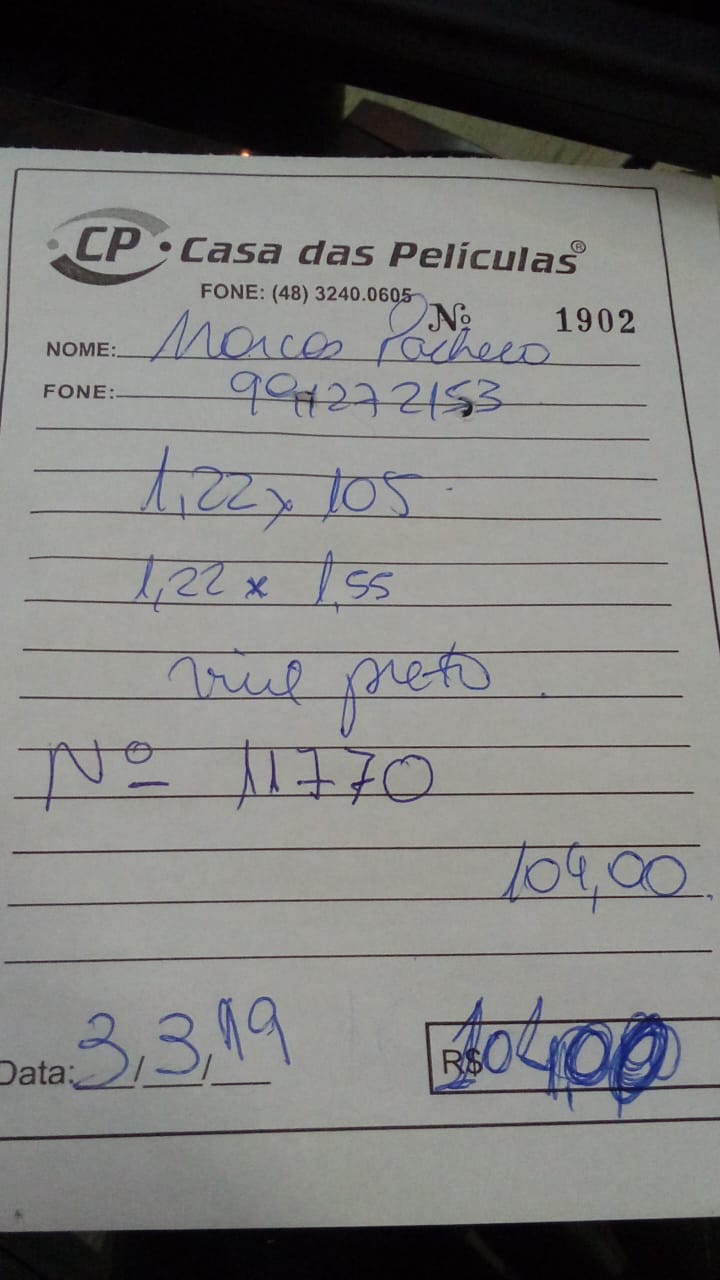 CP • Casa das Películas®
FONE: (48) 3240.0605
Nº 1902
NOME: Marcos Pacheco
FONE: 991272153
1,22 x 105
1,22 x 1,55
vinil preto
Nº 11770
104,00
Data: 3/3/19 R$ 104,00